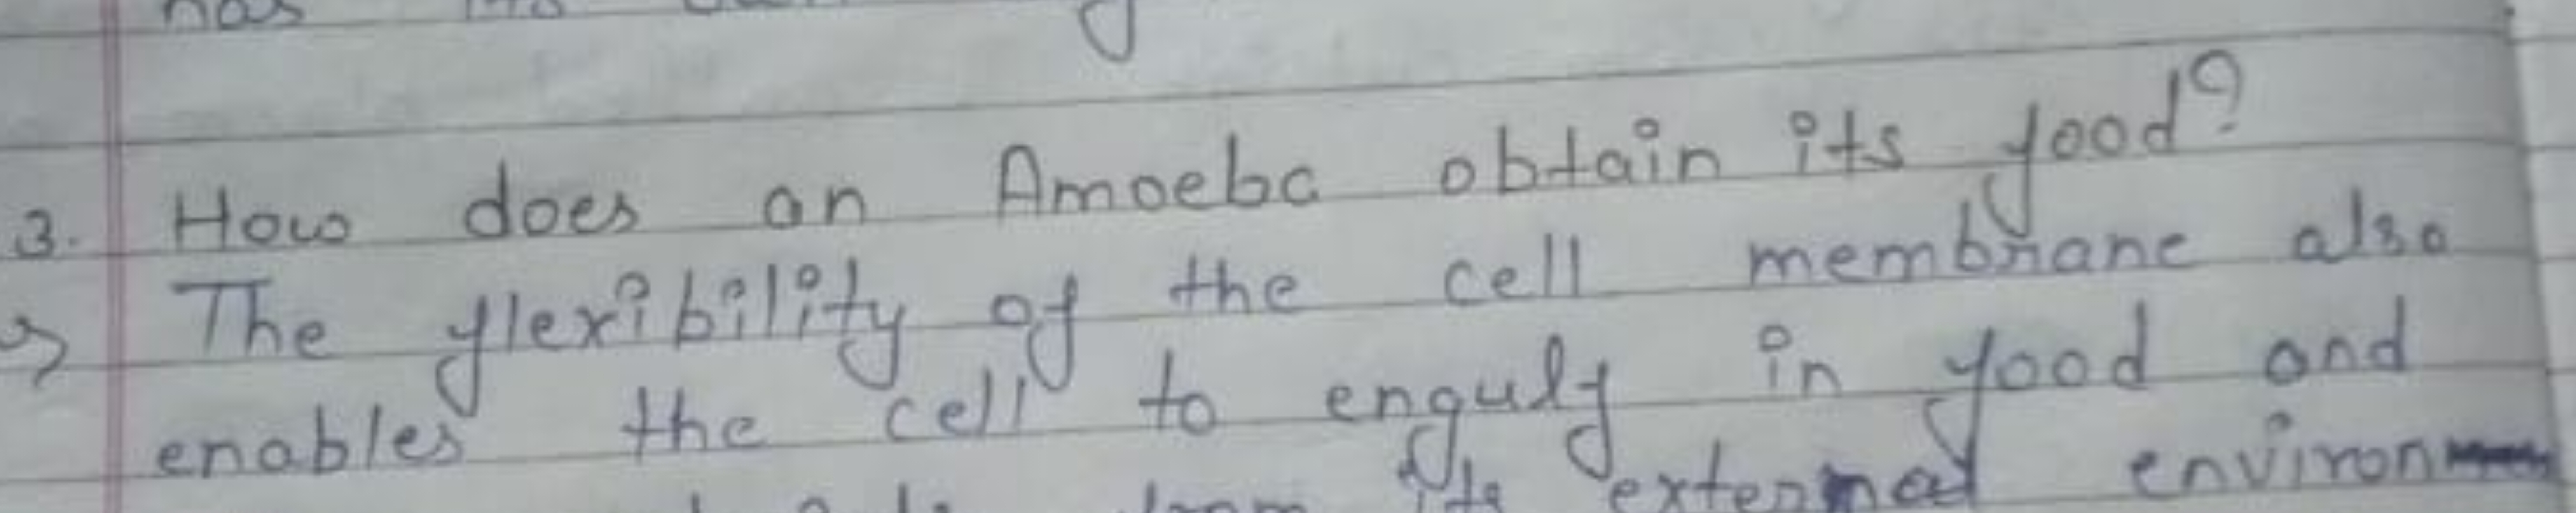 3. How does an Amoeba obtain its food?
The flexibility of the cell membrane also
enables the cell to engulf in food and
from its external environ